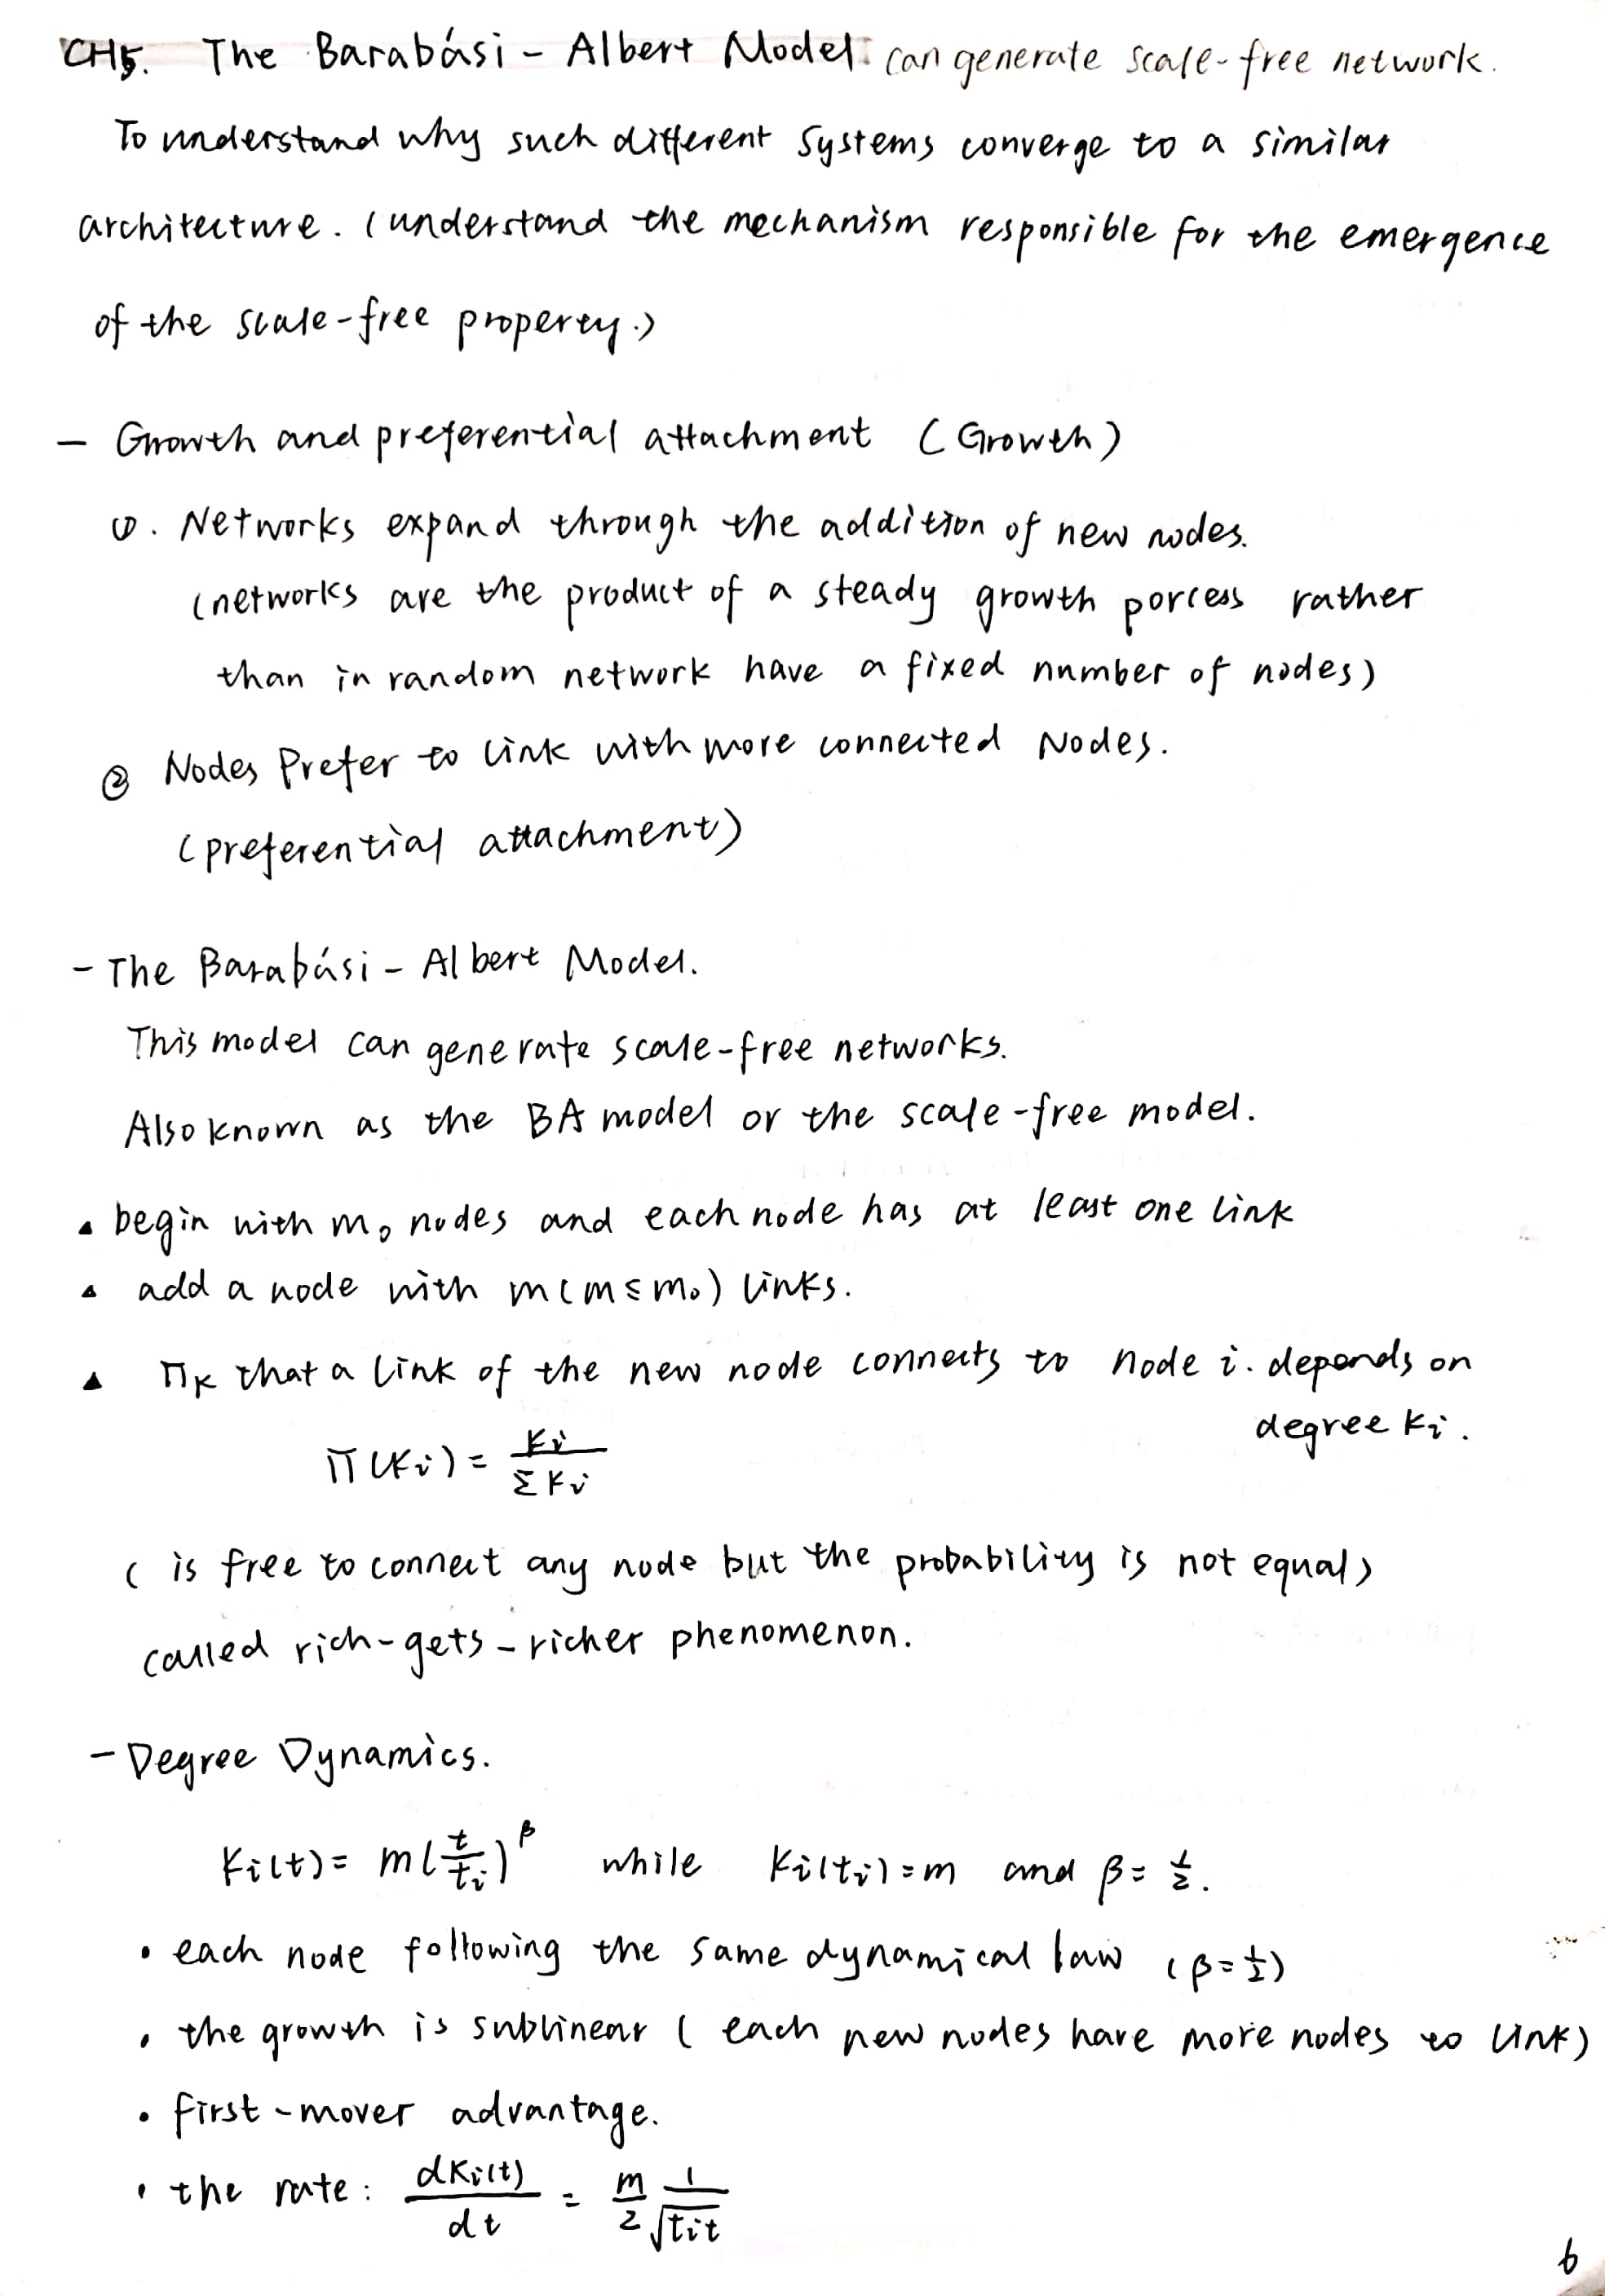 CH5. The Barabási - Albert Model: can generate scale-free network.
To understand why such different Systems converge to a similar
architecture. (understand the mechanism responsible for the emergence
of the scale-free property.)
- Growth and preferential attachment (Growth)
①. Networks expand through the addition of new nodes.
(networks are the product of a steady growth porcess rather
than in random network have a fixed number of nodes)
② Nodes Prefer to link with more connected Nodes.
(preferential attachment)
- The Barabási - Albert Model.
This model can generate scale-free networks.
Also known as the BA model or the scale-free model.
▲ begin with m₀ nodes and each node has at least one link
▲ add a node with m(m≤m₀) links.
▲ Πκ that a link of the new node connects to node i. depends on
degree ki.
Π(ki) = ki / Σki
( is free to connect any node but the probability is not equal)
called rich-gets-richer phenomenon.
- Degree Dynamics.
Ki(t) = m(t/ti)^β while Ki(ti)=m and β=1/2.
• each node following the same dynamical law (β=1/2)
• the growth is sublinear ( each new nodes have more nodes to link)
• first-mover advantage.
• the rate: dKi(t)/dt = m/2 1/√tit
6